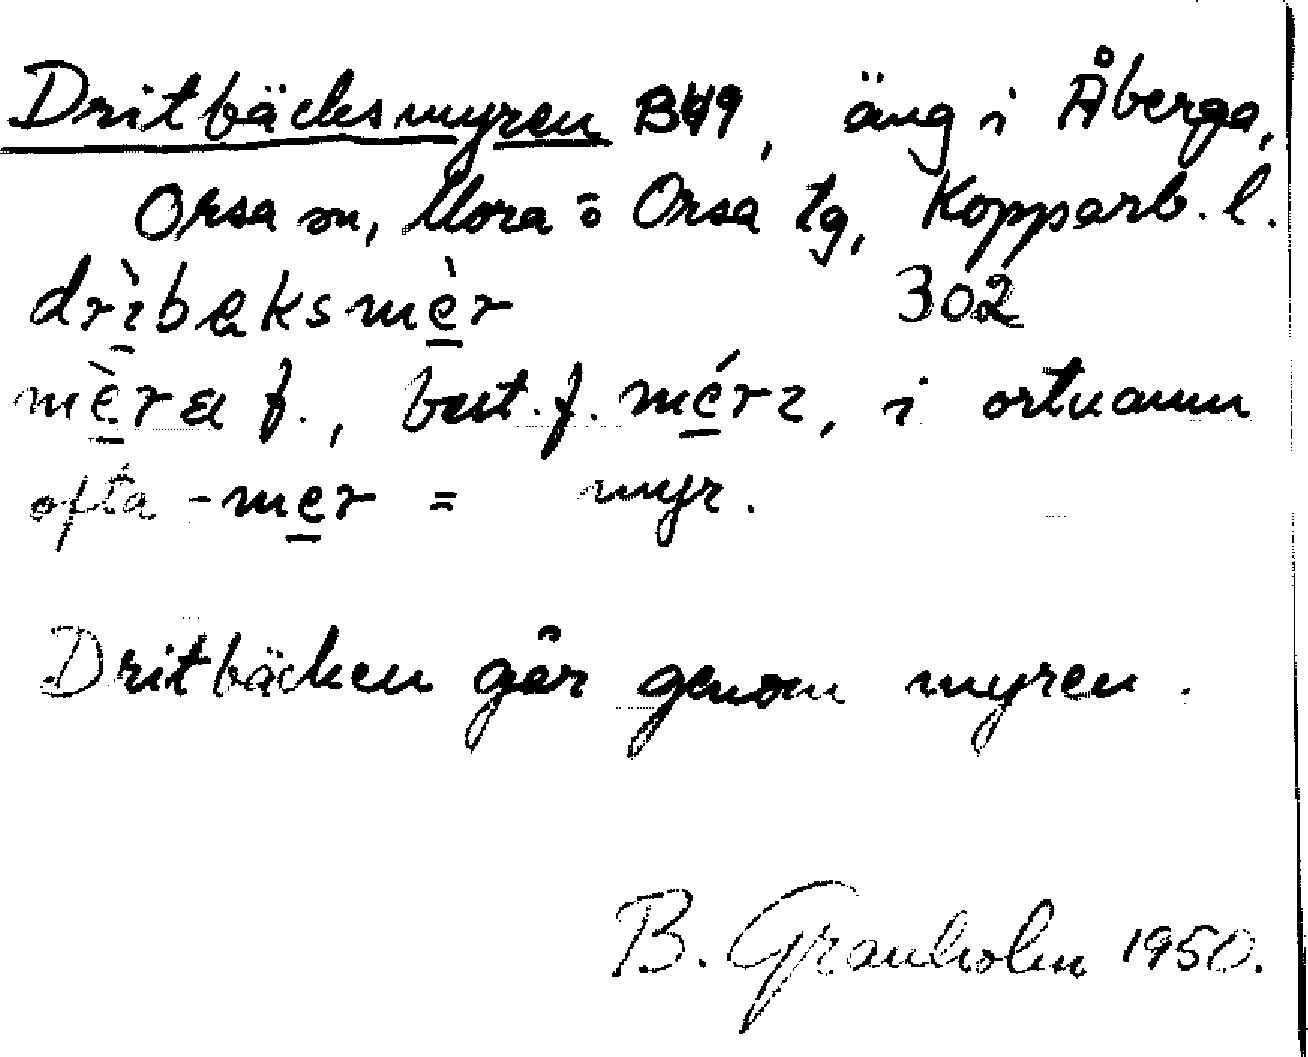 Dritbäcksmyren B49, äng i Åberga,
Orsa sn, Mora o Orsa tg, Kopparb. l.
drìbeksmèr 302
mèra f., best. f. mérɩ, i ortnamn
ofta -mer = myr.
Dritbäcken går genom myren.
B. Granholm 1950.